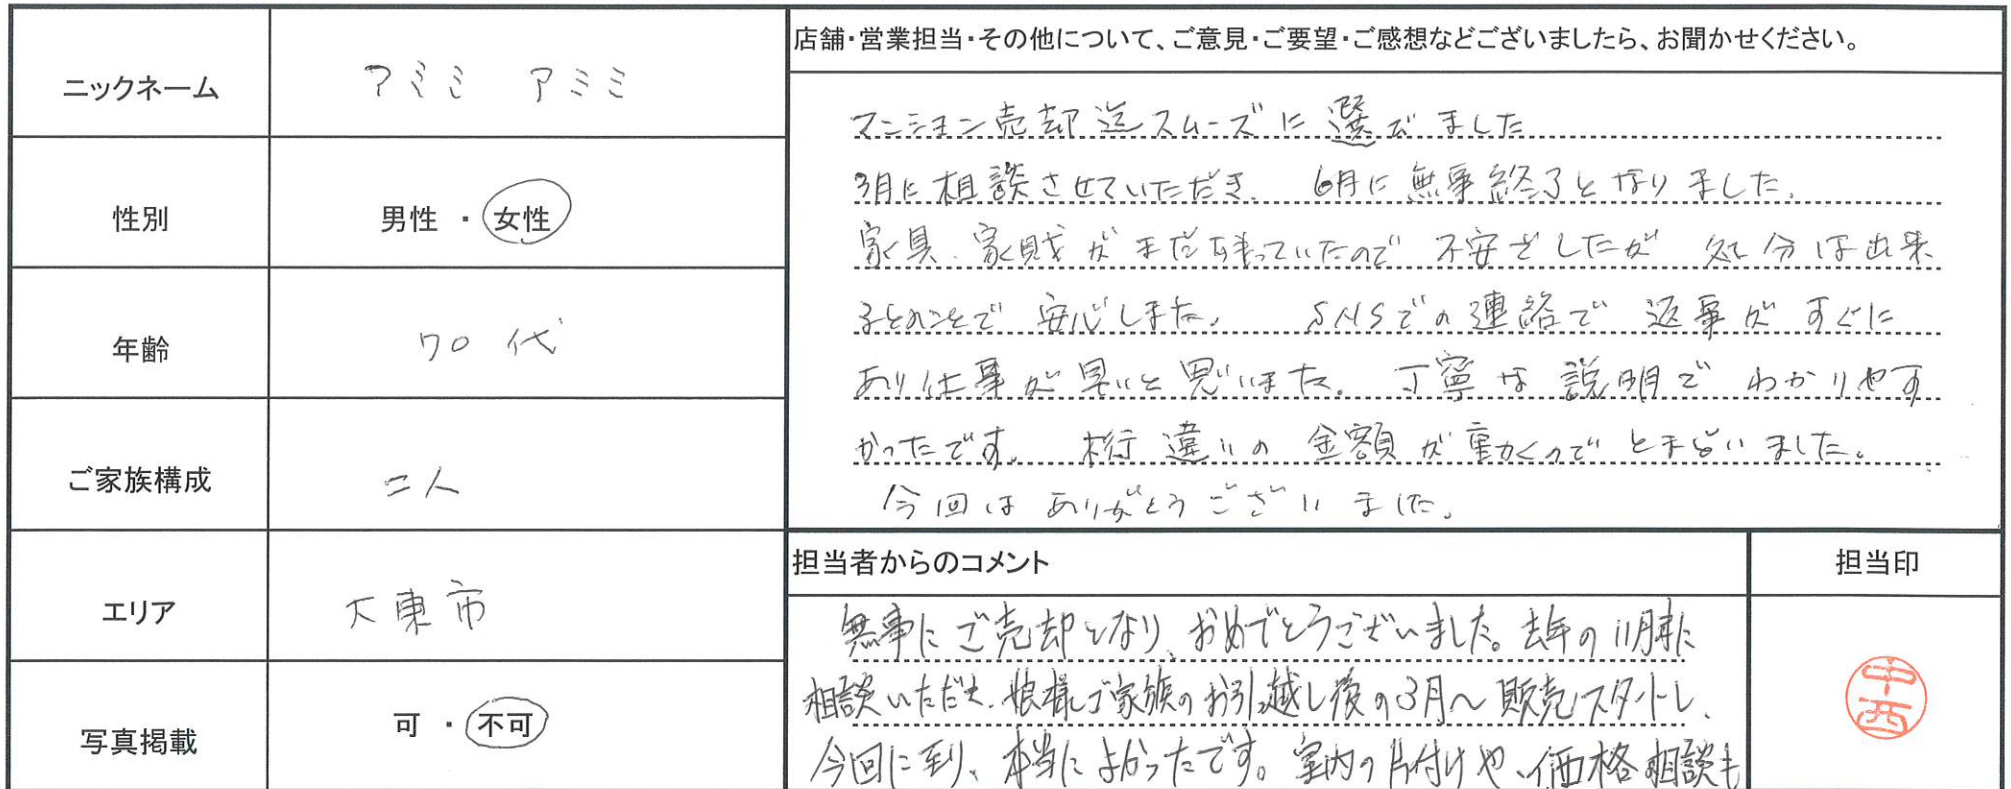 ニックネーム
アミミ アミミ
性別
男性 ・ 女性
年齢
70代
ご家族構成
二人
エリア
大東市
写真掲載
可 ・ 不可
店舗・営業担当・その他について、ご意見・ご要望・ご感想などございましたら、お聞かせください。
マンション売却迄スムーズに選びました
3月に相談させていただき、6月に無事終了となりました。
家具、家財がまだ残っていたので不安でしたが処分は出来
るとのことで安心しました。SNSでの連絡で返事がすぐに
あり仕事が早いと思いました。丁寧な説明でわかりやす
かったです。桁違いの金額が動くのでとまどいました。
今回はありがとうございました。
担当者からのコメント
無事にご売却となり、おめでとうございました。去年の11月末に
相談いただき、娘様ご家族のお引越し後の3月〜販売スタートし、
今回に至り、本当によかったです。室内の片付けや、価格相談も
担当印
中西